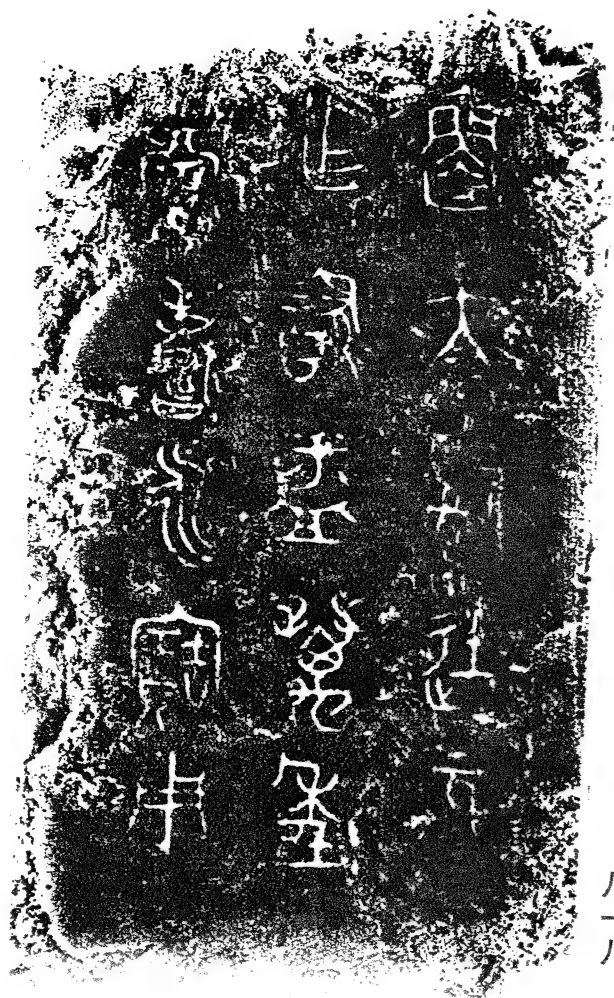 魯大司徒元
乍飲盂萬年
眉壽永寶用